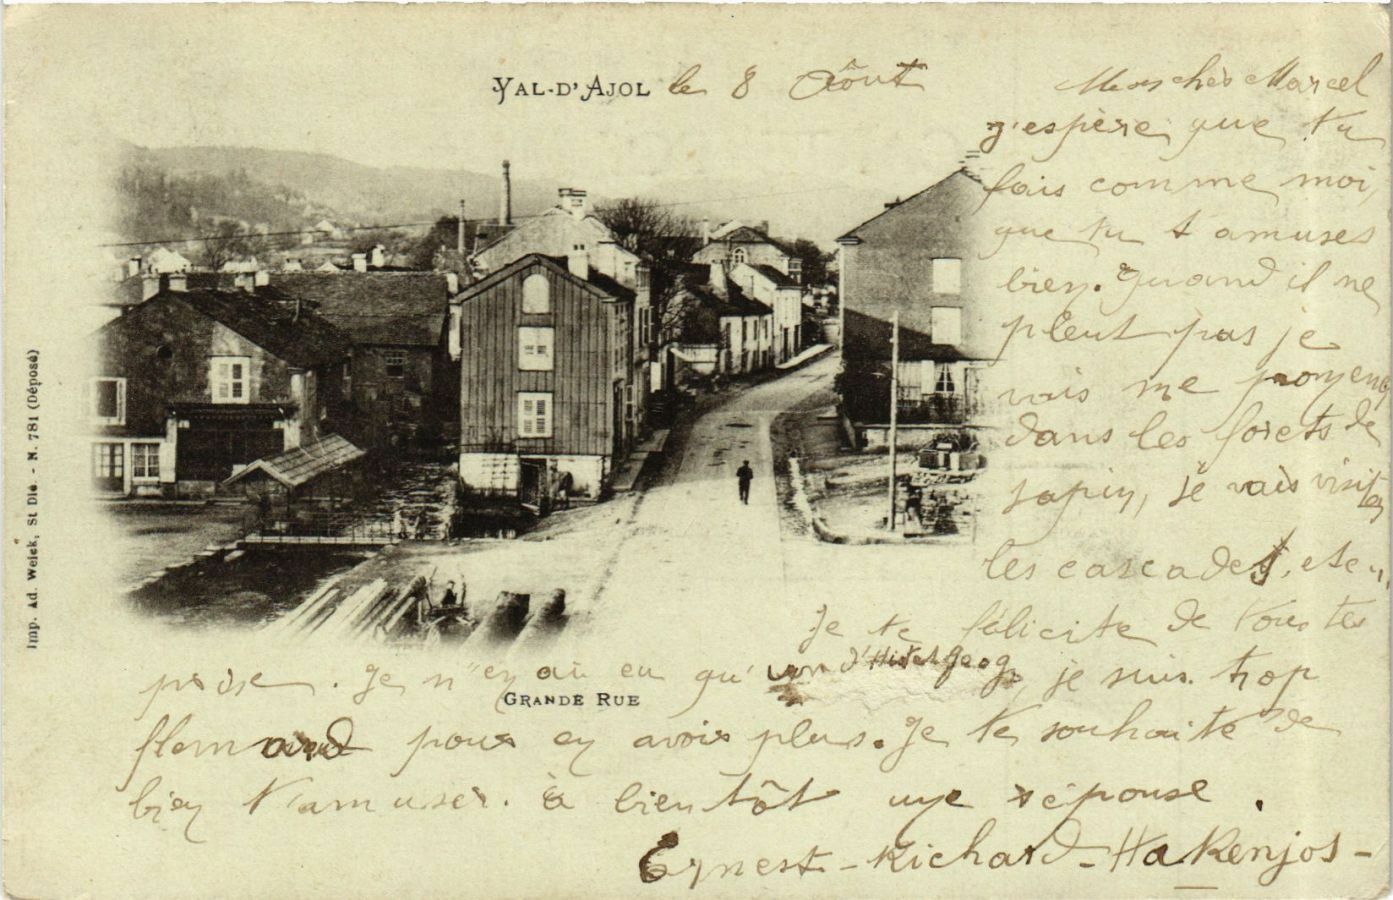 VAL-D'AJOL le 8 Août
Mon cher Marcel
j'espère que tu
fais comme moi,
que tu t'amuses
bien. Quand il ne
pleut pas je
vais me promener
dans les forêts de
sapin, je vais visiter
les cascades, etc...
Je te félicite de tous tes
prix. Je n'en ai eu qu'un d'Hist et Géog, je suis trop
GRANDE RUE
flemmard pour en avoir plus. Je te souhaite de
bien t'amuser. à bientôt une réponse.
Ernest-Richard-Hakenjos-
Imp. Ad. Weick, St Dié. - N. 781 (Déposé)